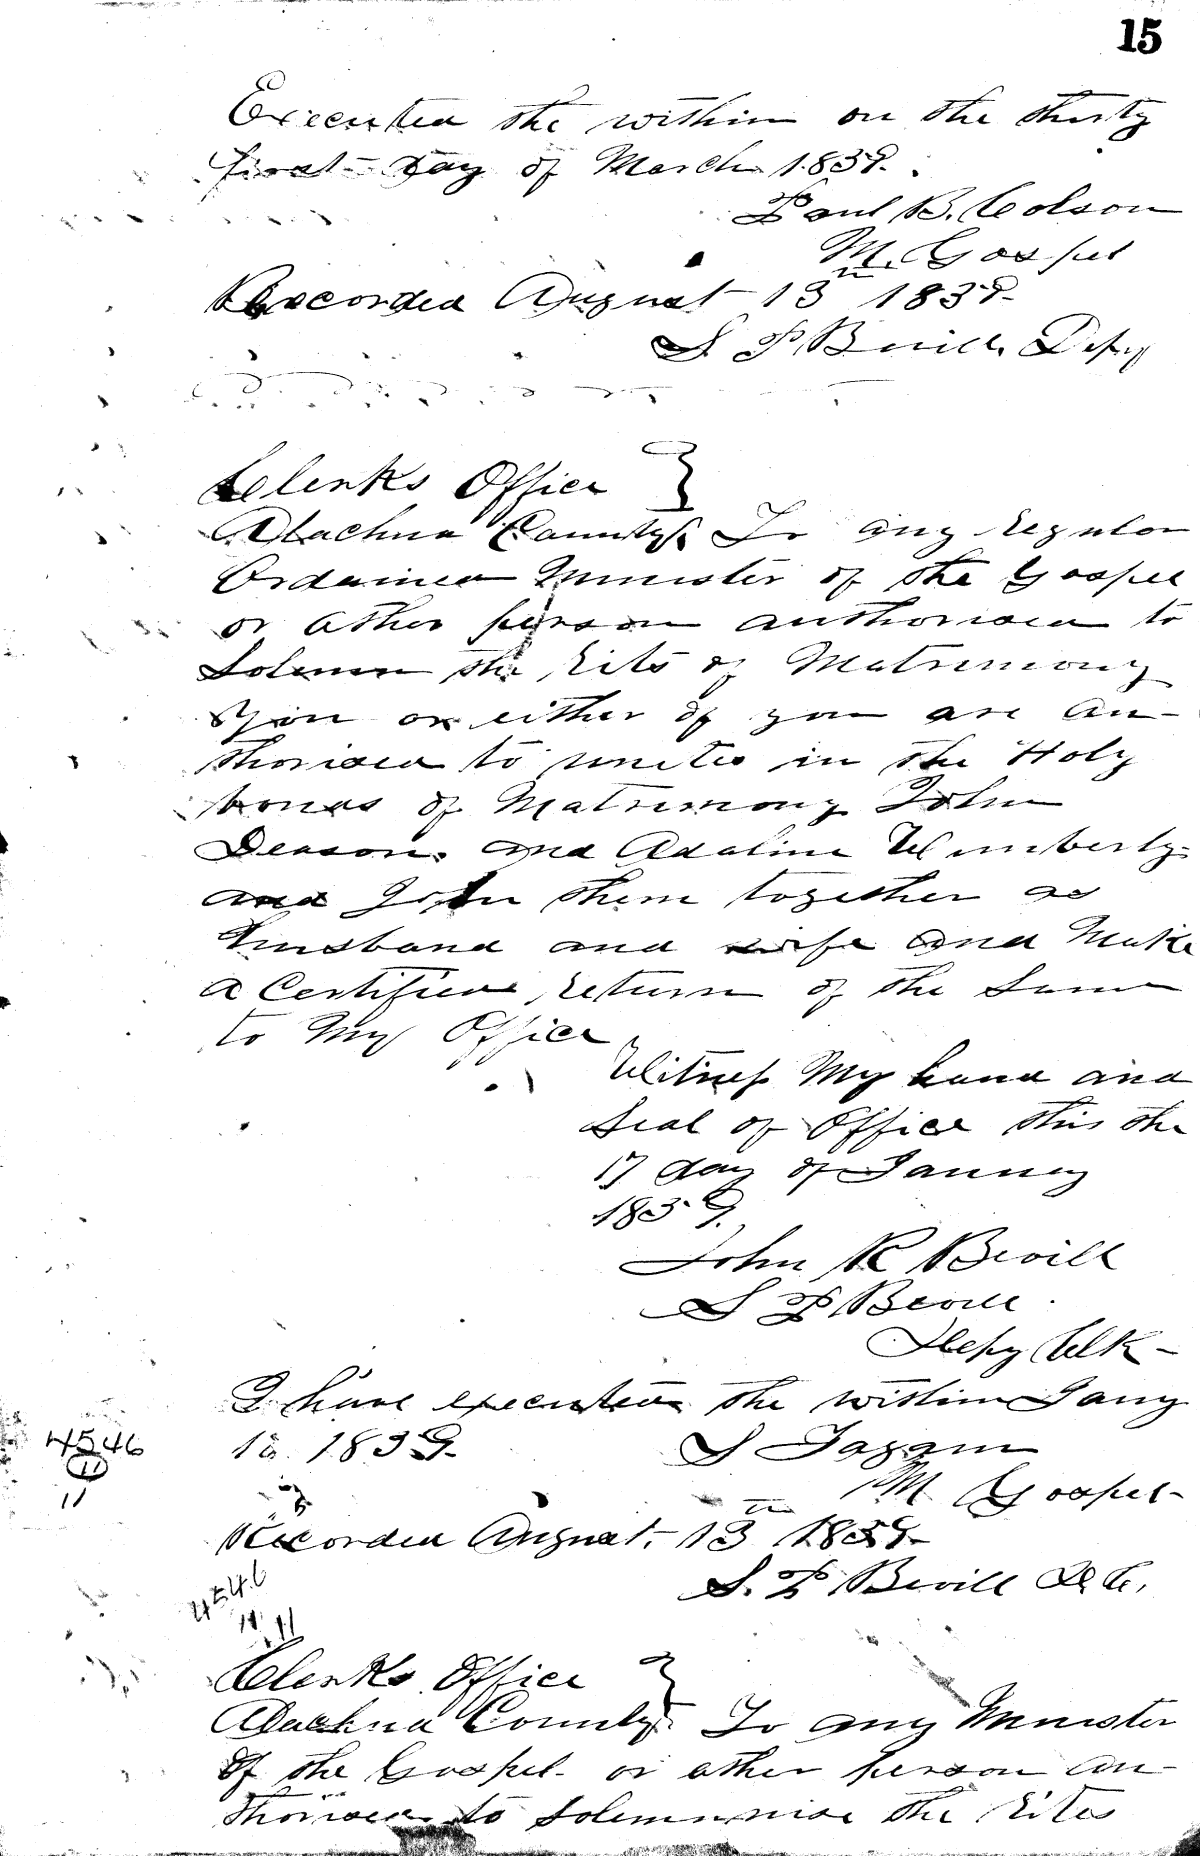 15
Executed the within on the thirty
first day of March 1839.
Paul B. Colson
M. Gospel
Recorded August 13th 1839
S P Bevill Depy
Clerks Office }
Alachua County To any regular
Ordained Minister of the Gospel
or other person authorised to
Solemn the rits of Matrimony
You or either of you are au-
thorised to unite in the Holy
bonds of Matrimony John
Deason. and Adaline Wimberly
and join them together as
husband and wife and Make
a Certified return of the Same
to My Office
Witness My hand and
Seal of Office this the
17 day of January
1839.
John R Bevill
S P Bevill
Depy Clk -
I have executed the within Jany
1839. S
4546
11
11
M Gospel-
Recorded August 13th 1839-
S. P Bevill D C.
4546
11 11
Clerks Office }
Alachua County To any Minister
Of the Gospel- or other person au-
thorised to Solemnise the Rites